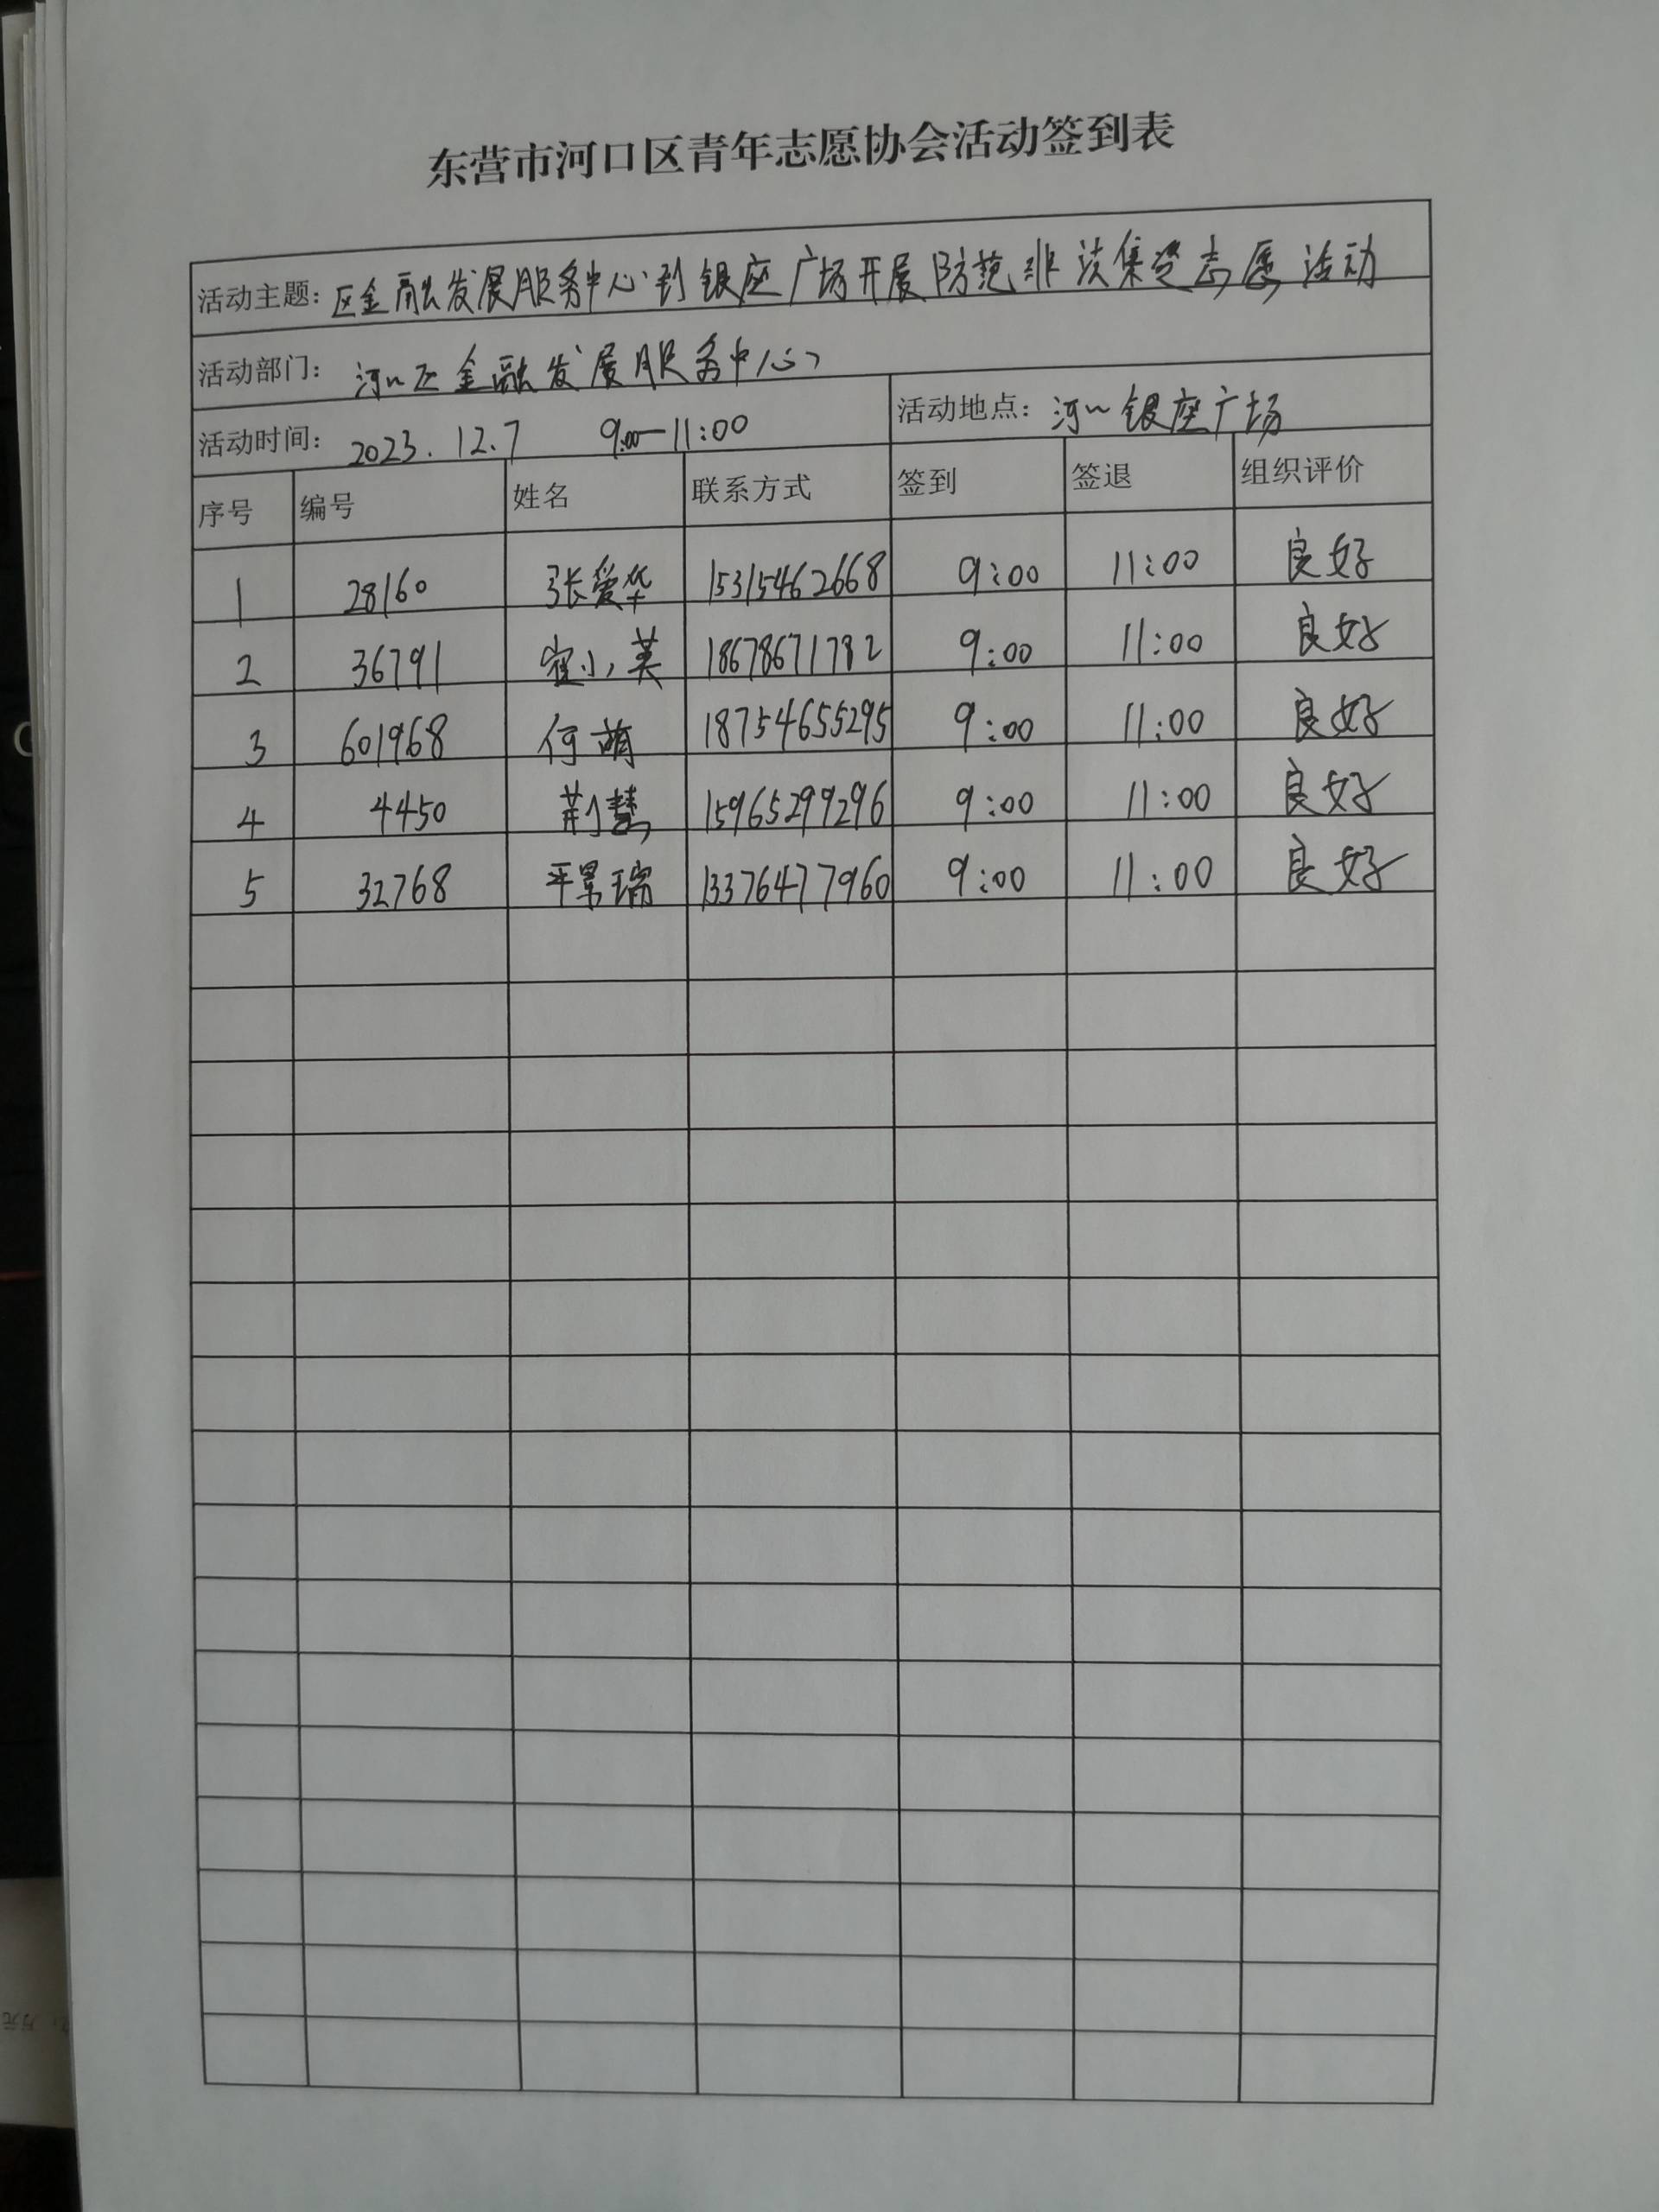 东营市河口区青年志愿协会活动签到表
活动主题：区金融发展服务中心到银座广场开展防范非法集资志愿活动
活动部门：河口区金融发展服务中心
活动时间：2023.12.7 9:00-11:00 活动地点：河口银座广场
序号 编号 姓名 联系方式 签到 签退 组织评价
1 28160 张爱华 15315462668 9:00 11:00 良好
2 36791 小英 18678671782 9:00 11:00 良好
3 601968 何萌 18754655295 9:00 11:00 良好
4 4450 荆慧 15965299296 9:00 11:00 良好
5 32768 平景瑞 13376477960 9:00 11:00 良好